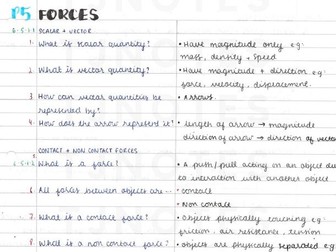 P5 FORCES
6.5.1.1 SCALAR + VECTOR
1. What is scalar quantity?
• Have magnitude only e.g:
mass, density + speed
2. What is vector quantity?
• Have magnitude + direction e.g:
force, velocity, displacement.
3. How can vector quantities be
represented by?
• Arrows.
4. How does the arrow represent it?
• length of arrow → magnitude
direction of arrow → direction of vector
CONTACT + NON CONTACT FORCES
What is a force?
• A push/pull acting on an object due
to interaction with another object
6. All forces between objects are --
• contact
Non contact
7. What is a contact force?
• Objects physically touching e.g:
friction, air resistance, tension
8. What is a non contact force?
• objects are physically separated e.g: